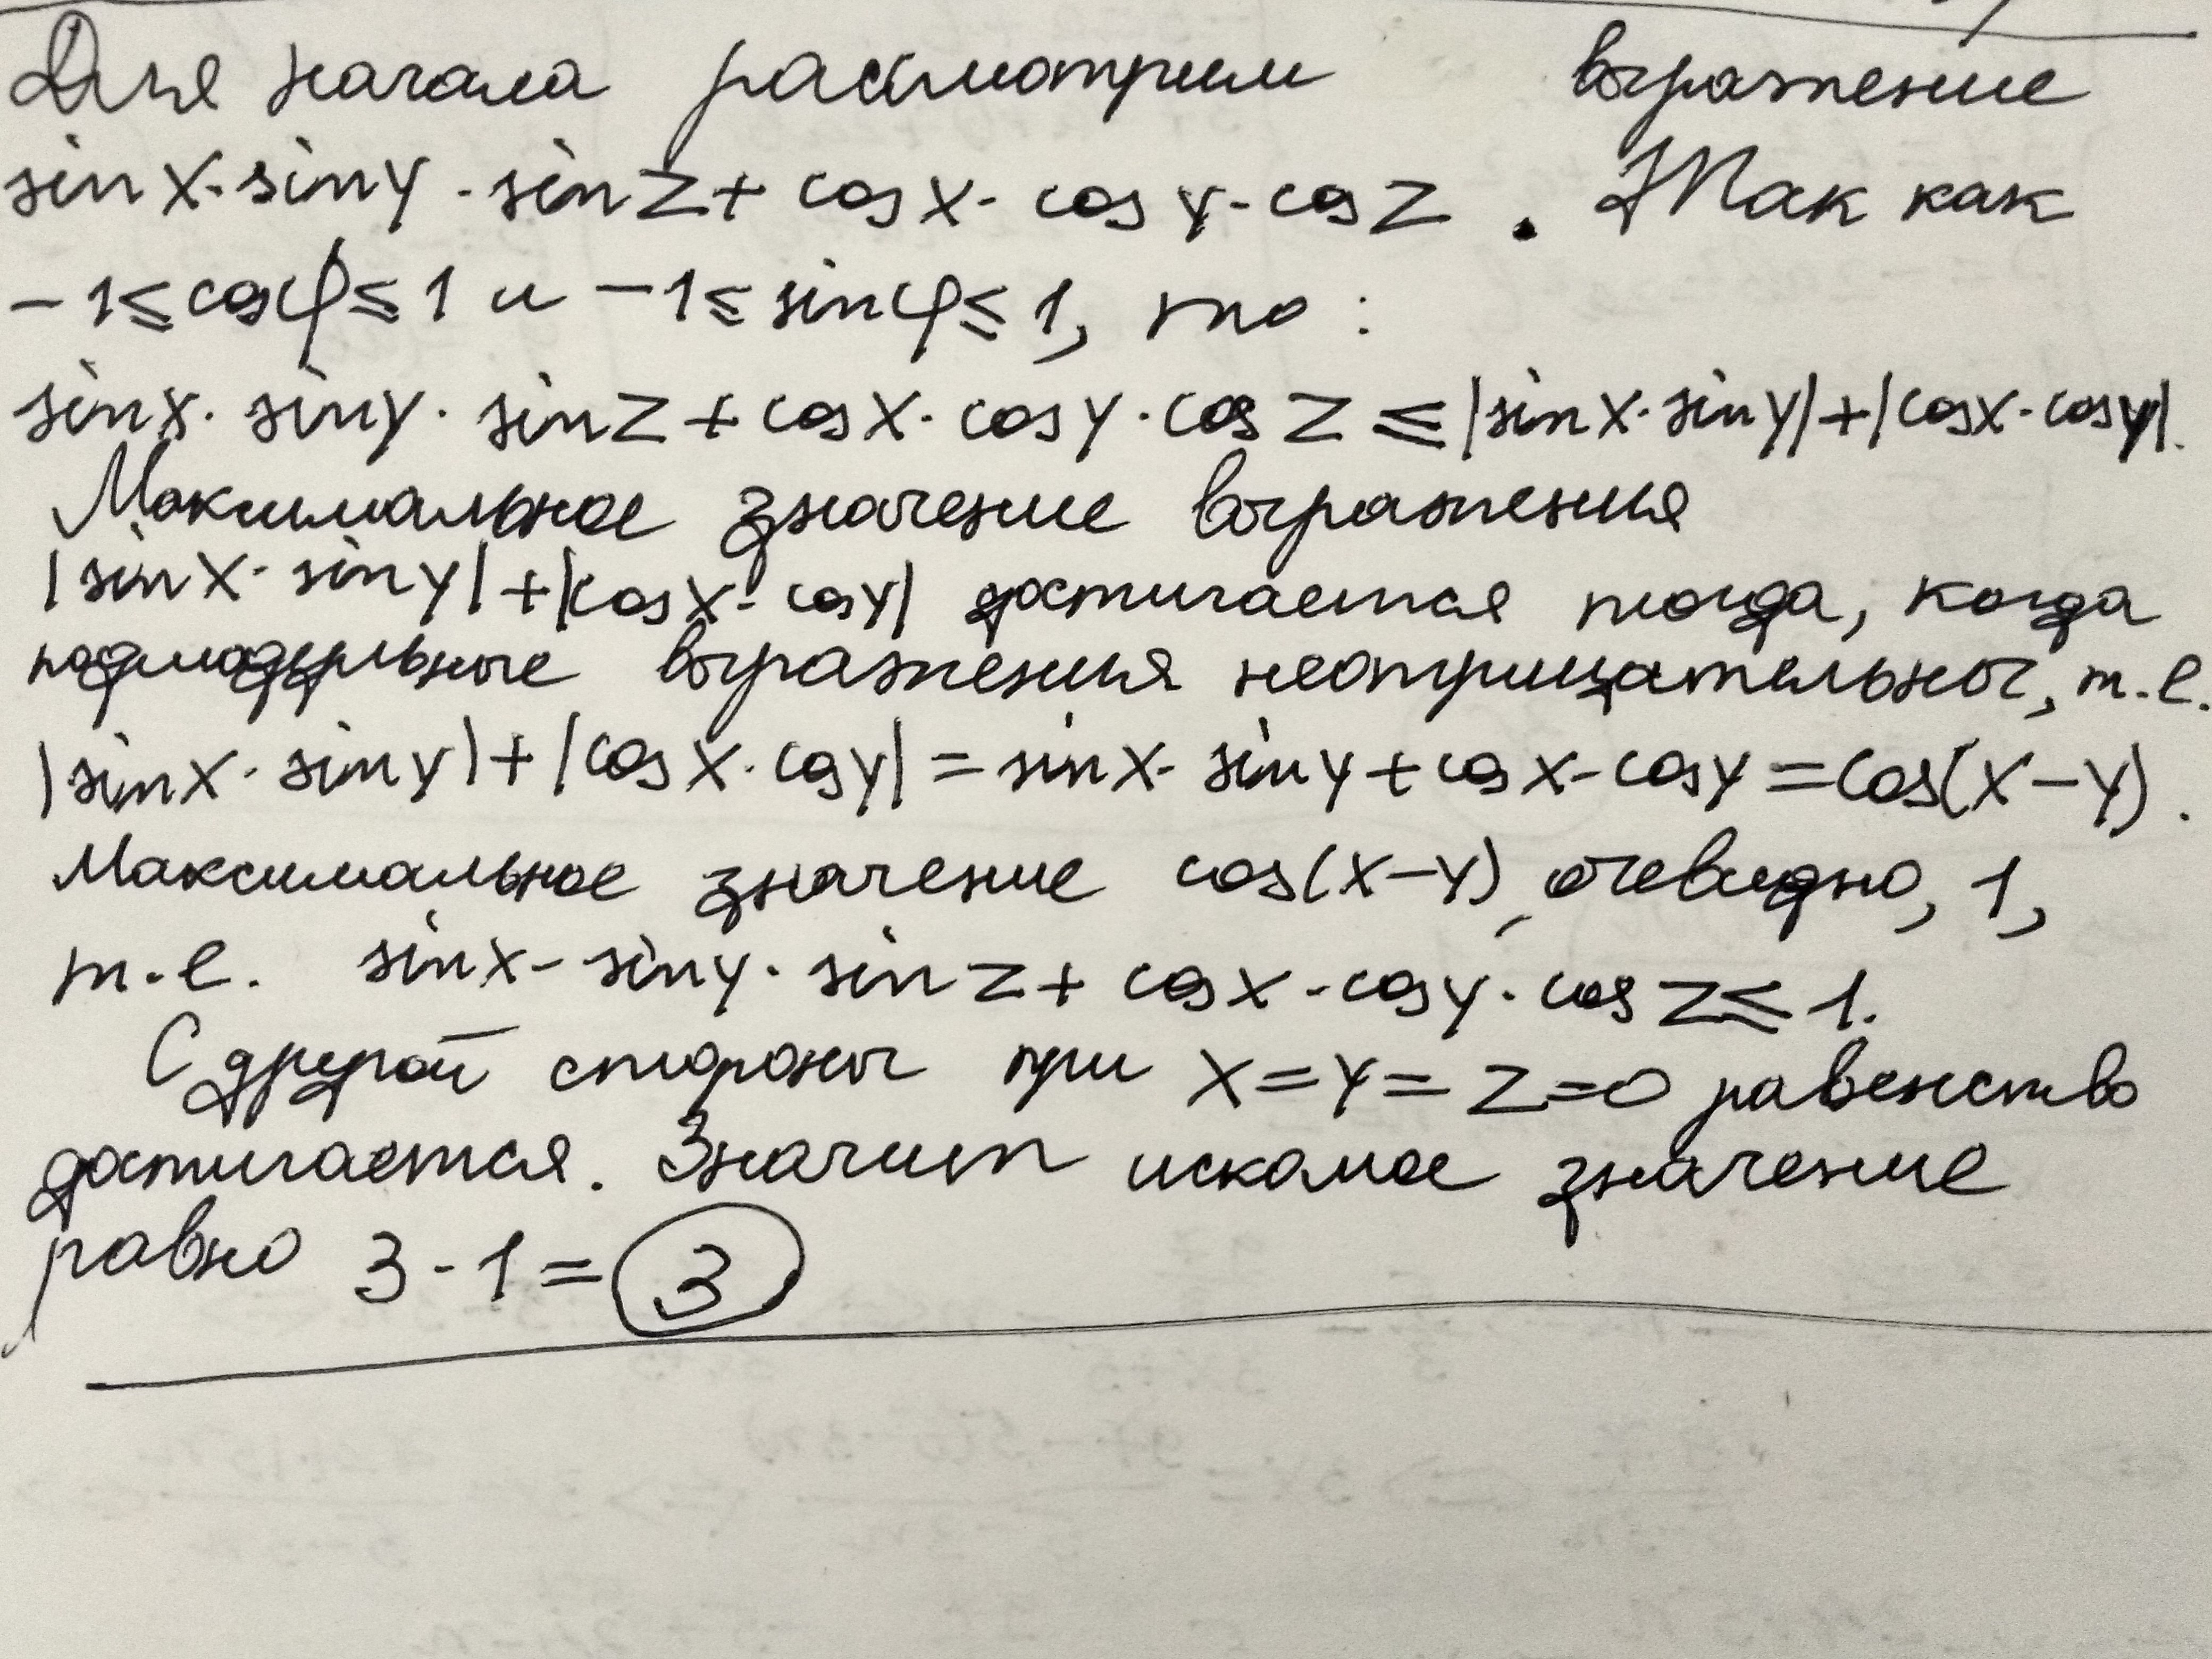 Для начала рассмотрим выражение
sin x · sin y · sin z + cos x · cos y · cos z . Так как
-1 ≤ cos φ ≤ 1 и -1 ≤ sin φ ≤ 1, то :
sin x · sin y · sin z + cos x · cos y · cos z ≤ |sin x · sin y| + |cos x · cos y|.
Максимальное значение выражения
|sin x · sin y| + |cos x · cos y| достигается тогда, когда
подмодульные выражения неотрицательны, т.е.
|sin x · sin y| + |cos x · cos y| = sin x · sin y + cos x · cos y = cos(x - y).
Максимальное значение cos(x - y), очевидно, 1,
т.е. sin x · sin y · sin z + cos x · cos y · cos z ≤ 1.
С другой стороны при x = y = z = 0 равенство
достигается. Значит искомое значение
равно 3 · 1 = 3